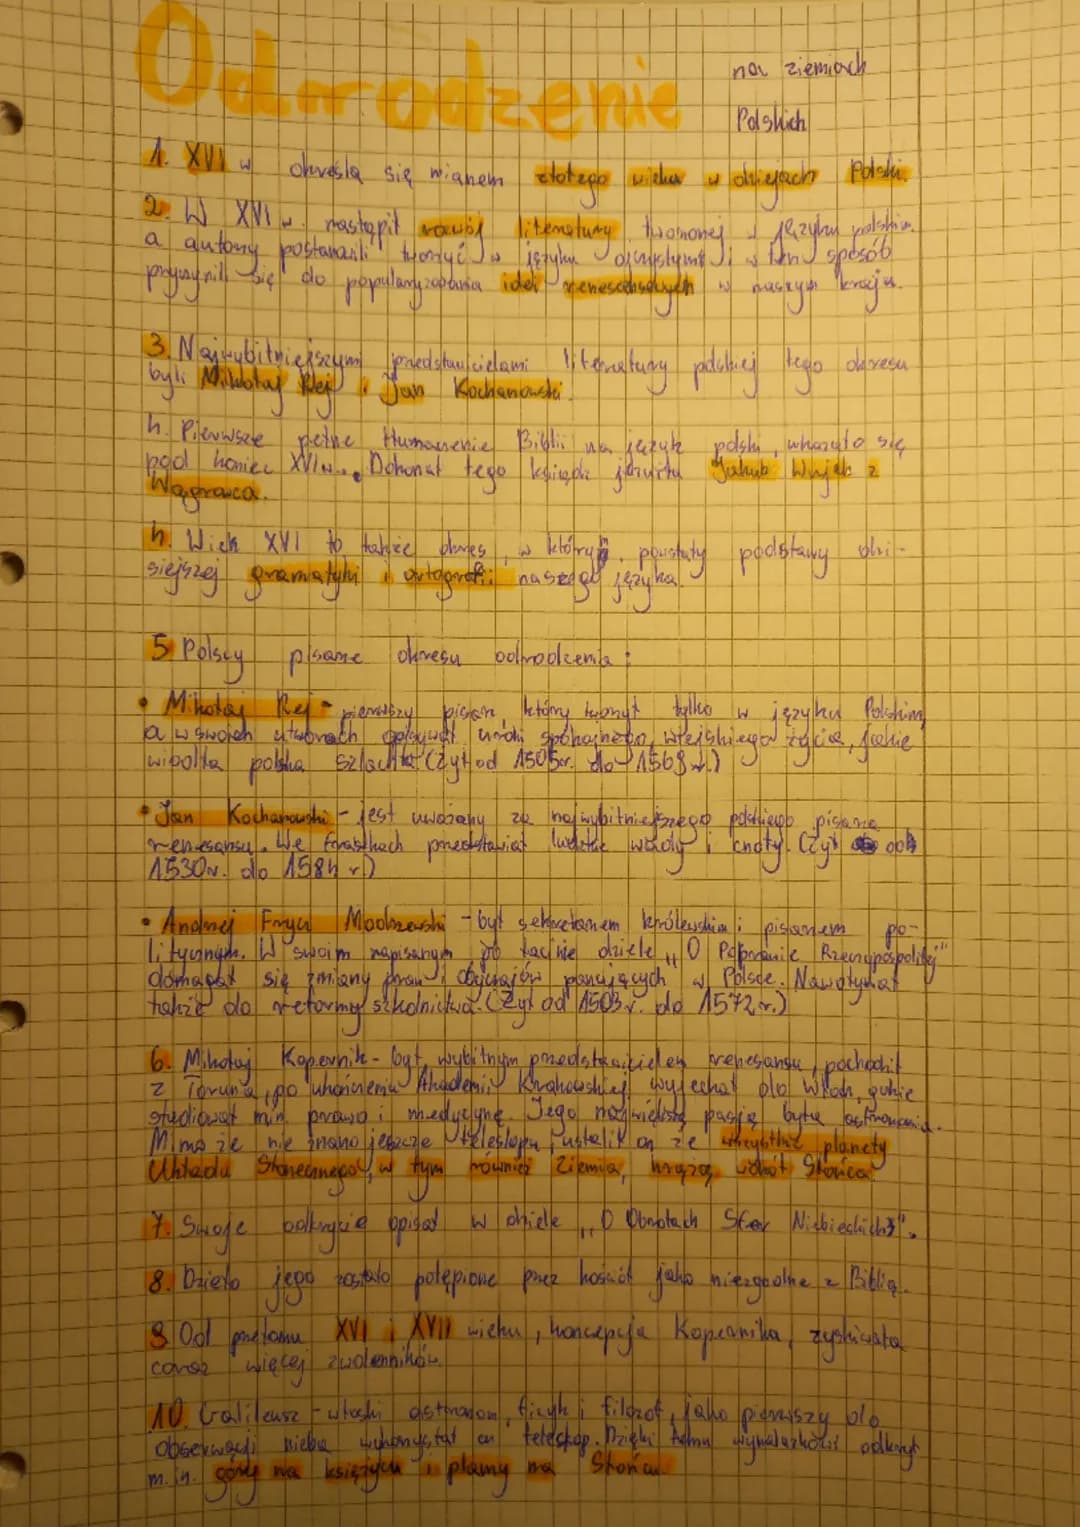 Odrodzenie na ziemiach
Polskich
1. XVI w określa się mianem złotego wieku w dziejach Polski.
2. W XVI w. nastąpił rozwój literatury tworzonej w języku polskim.
a autorzy postanowili tworzyć w języku ojczystym i w ten sposób
przyczynili się do popularyzowania idei renesansowych w naszym kraju.
3. Najwybitniejszymi przedstawicielami literatury polskiej tego okresu
byli Mikołaj Rej i Jan Kochanowski.
4. Pierwsze pełne tłumaczenie Biblii na język polski, ukazało się
pod koniec XVI w. Dokonał tego ksiądz jezuita Jakub Wujek z
Wągrowca.
4. Wiek XVI to także okres, w którym powstały podstawy dzi-
siejszej gramatyki i ortografii naszego języka.
5 Polscy pisarze okresu odrodzenia:
• Mikołaj Rej - pierwszy pisarz, który tworzył tylko w języku Polskim,
a w swoich utworach opisywał uroki spokojnego, wiejskiego życia, jakie
wiodła polska szlachta (żył od 1505r. do 1569r.)
• Jan Kochanowski - jest uważany za najwybitniejszego polskiego pisarza
renesansu. We fraszkach przedstawiał ludzkie wady i cnoty. (żył od
1530r. do 1584 r.)
• Andrzej Frycz Modrzewski - był sekretarzem królewskim i pisarzem po-
litycznym. W swoim napisanym po łacinie dziele „O Poprawie Rzeczypospolitej"
domagał się zmiany praw i obyczajów panujących w Polsce. Nawoływał
także do reformy szkolnictwa. (Żył od 1503 r. do 1572 r.)
6. Mikołaj Kopernik - był wybitnym przedstawicielem renesansu, pochodził
z Torunia, po ukończeniu Akademii Krakowskiej wyjechał do Włoch, gdzie
studiował min. prawo i medycynę. Jego największą pasją była astronomia.
Mimo że nie znano jeszcze teleskopu, ustalił on że wszystkie planety
Układu Słonecznego, w tym również Ziemia, krążą wokół Słońca.
7. Swoje odkrycie opisał w dziele „O Obrotach Sfer Niebieskich".
8. Dzieło jego zostało potępione przez kościół jako niezgodne z Biblią.
9 Od przełomu XVI i XVII wieku, koncepcja Kopernika, zyskiwała
coraz więcej zwolenników.
10. Galileusz - włoski astronom, fizyk i filozof, jako pierwszy do
obserwacji nieba wykorzystał on teleskop. Dzięki temu wynalazkowi odkrył
m. in. góry na księżycu i plamy na Słońcu.